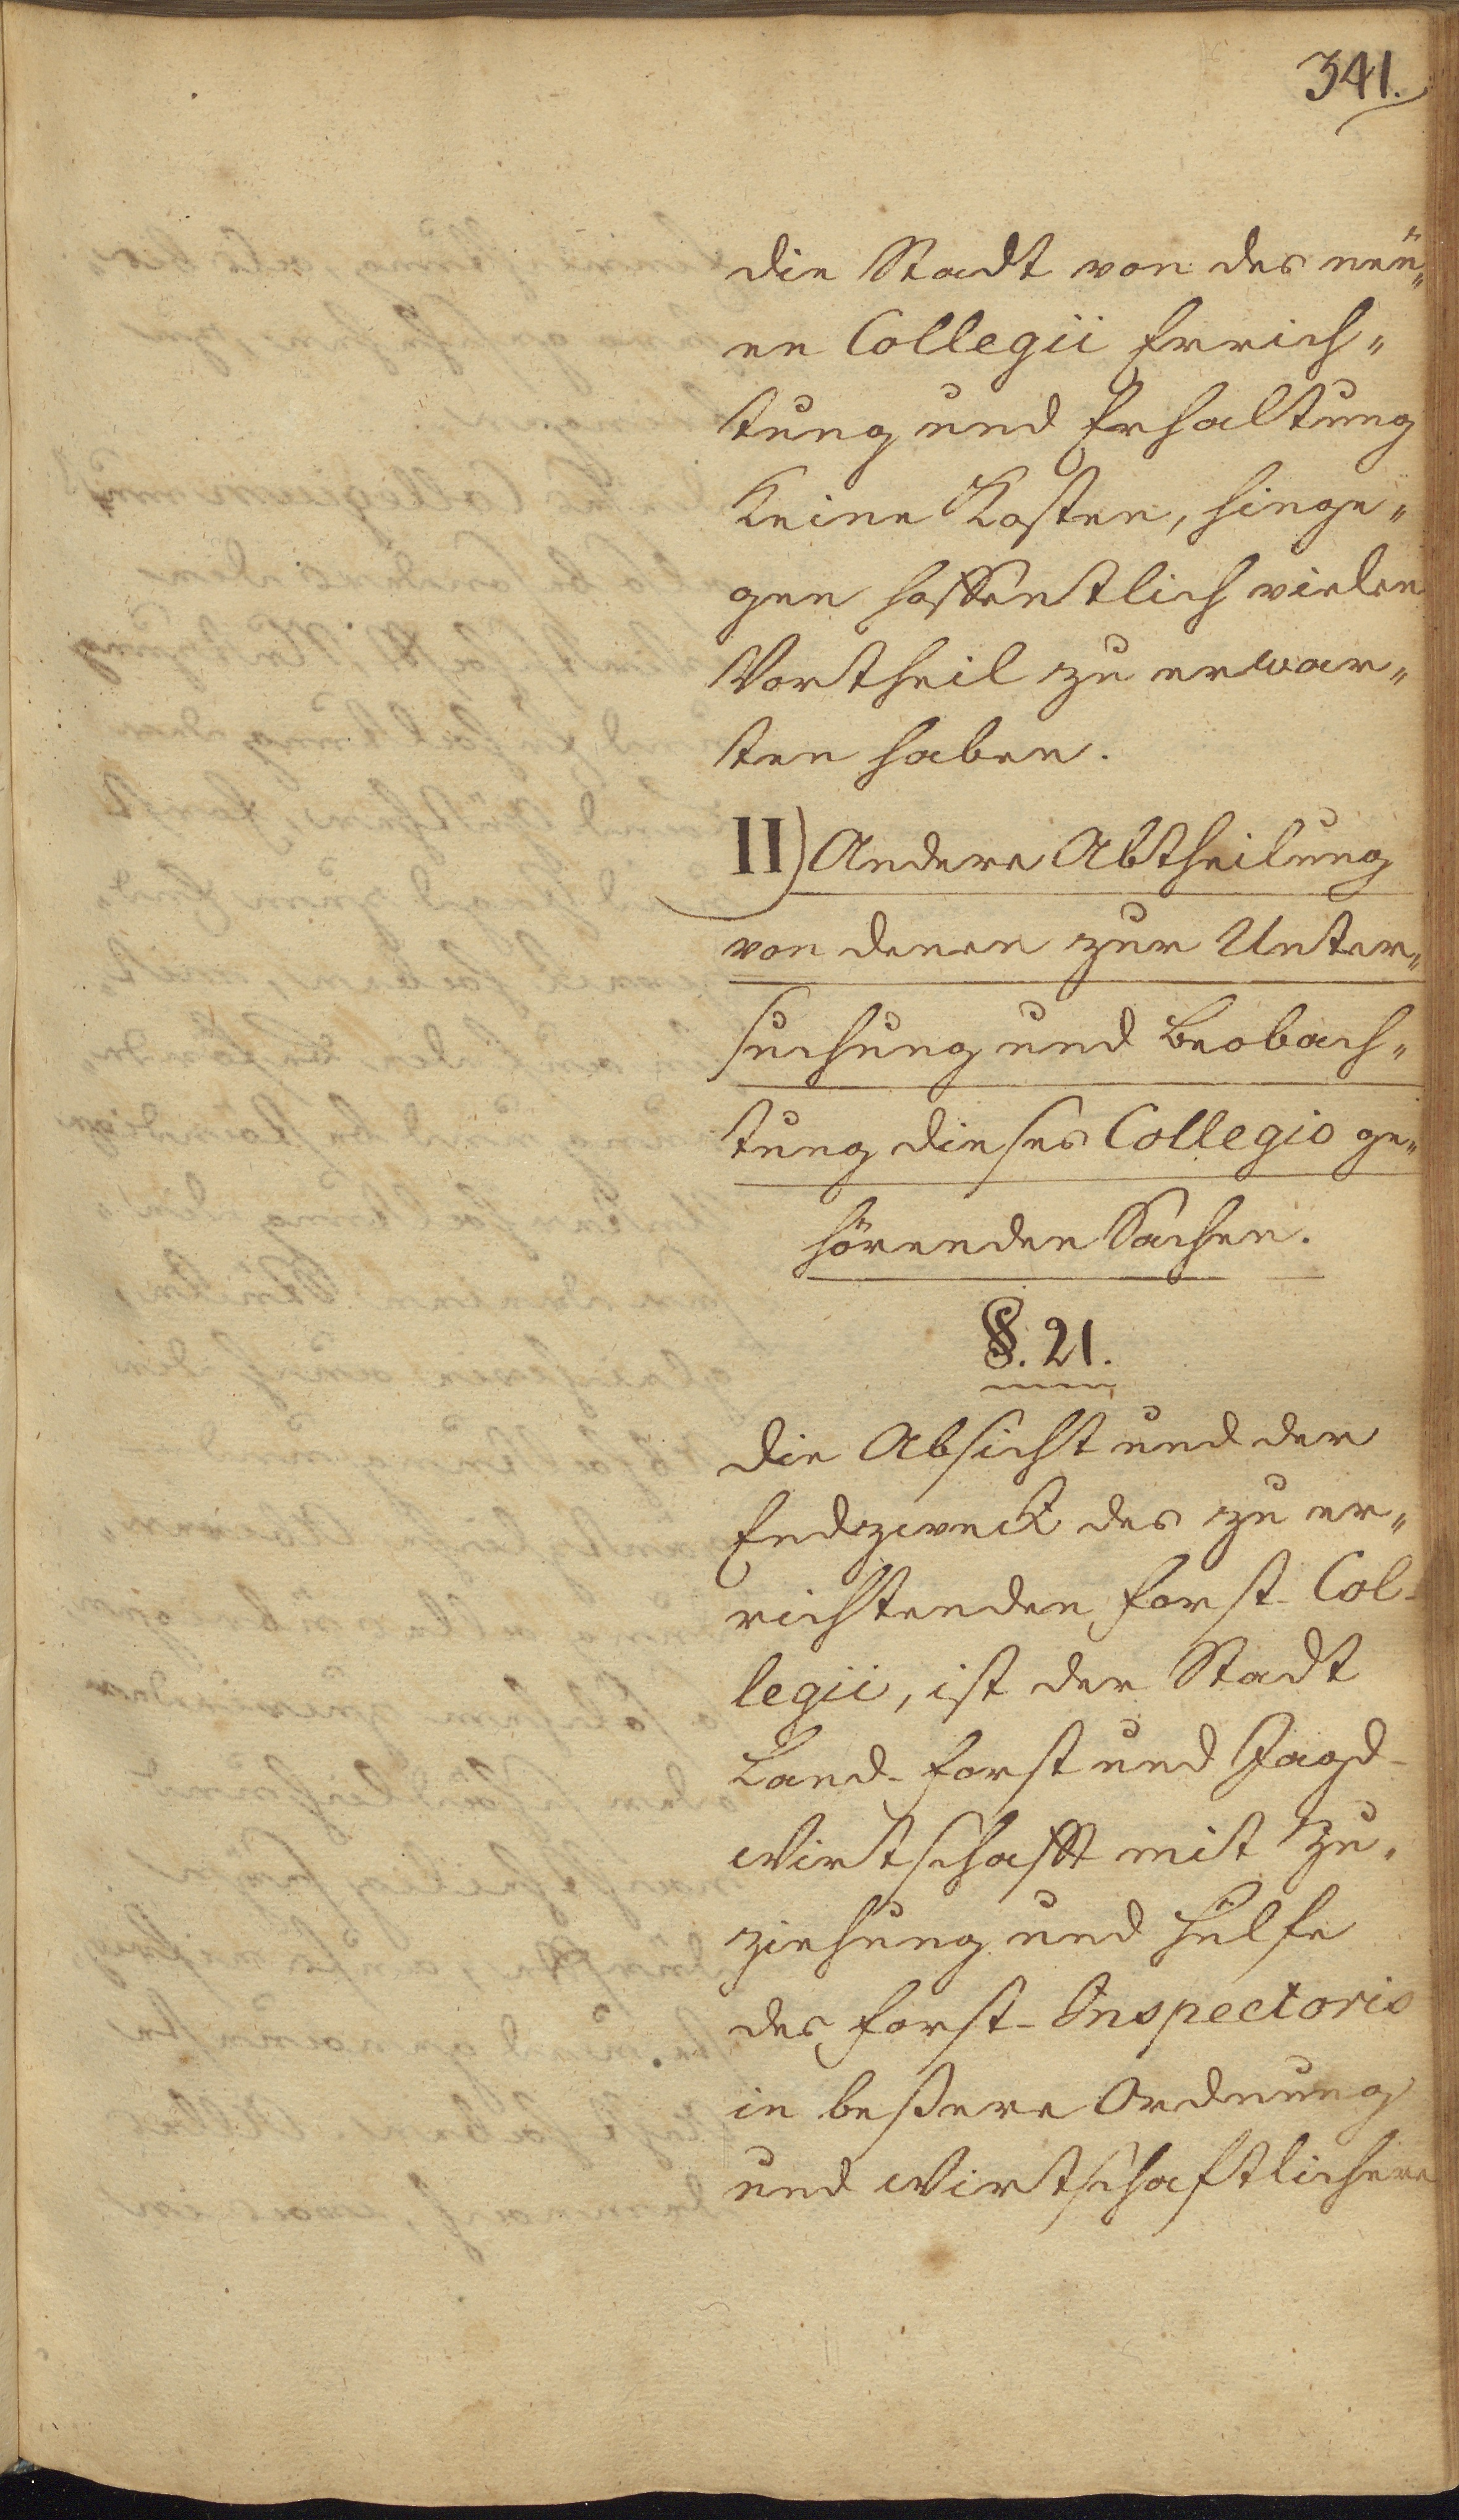 341.
die Stadt von des neü„
en Collegii Errich„
tung und Erhaltung
keine Kosten, hinge„
gen hoffentlich vielen
Vortheil zu erwar„
ten haben.
II) Andere Abtheilung
von denen zur Unter„
suchung und Beobach„
tung dieses Collegio ge„
hörenden Sachen.
§. 21.
die Absicht und der
Endzweck des zu er„
richtenden Forst-Col-
legii, ist der Stadt
Land- Forst und Jagd-
Wirtschafft mit Zu„
ziehung und Hülfe
des Forst-Inspectoris
in beßere Ordnung
und Wirtschaftlichere